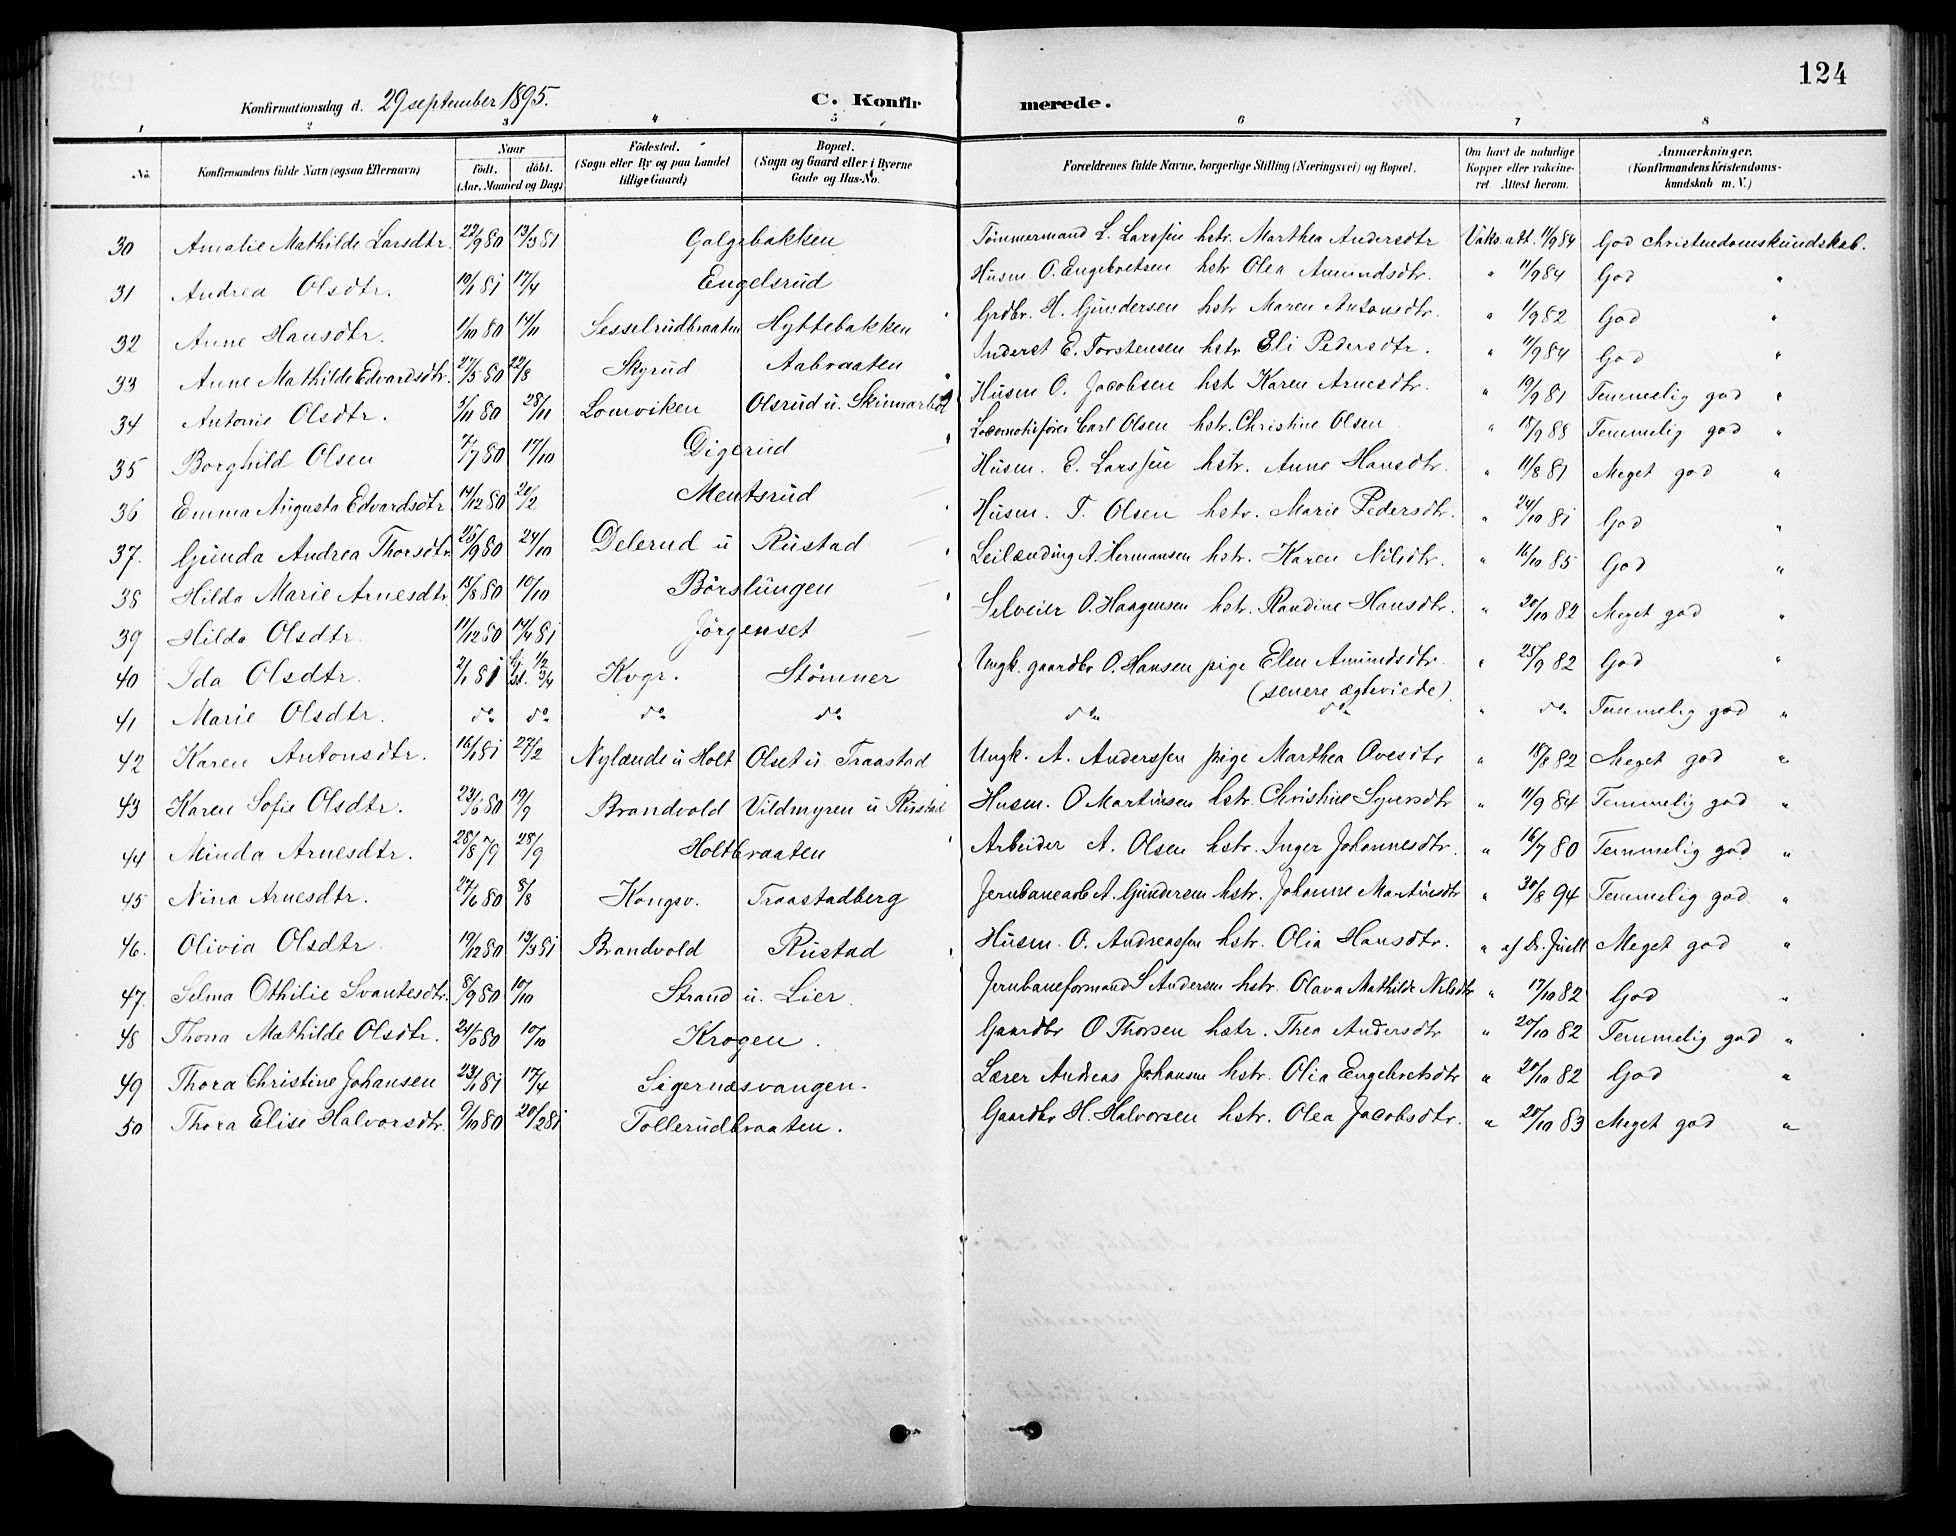 124
Konfirmationsdag d. 29 september 1895. C. Konfirmerede.
1 2 3 4 5 6 7 8
No. Konfirmandens fulde Navn (ogsaa Efternavn) Naar født. døbt. (Aar, Maaned og Dag) Fødested. (Sogn eller By og paa Landet tillige Gaard) Bopæl. (Sogn og Gaard eller i Byerne Gade og Hus-No. Forældrenes fulde Navne, borgerlige Stilling (Næringsvei) og Bopæl. Om havt de naturlige Kopper eller vakcineret. Attest herom. Anmærkninger. (Konfirmandens Kristendomskundskab m. V.)
30 Amalie Mathilde Larsdtr. 22/9 80 13/3 81 Galgebakken Tømmermand L. Larssen hstr. Marthea Andersdtr Vaks. att. 11/9 84 God christendomskundskab.
31 Andrea Olsdtr. 19/1 81 17/4 Engelsrud Husm O. Engebretsen hstr Olea Amundsdtr. " 11/9 84 God "
32 Anne Hansdtr. 1/10 80 14/11 Sesselrudbraaten Hyttebakken Grdbr. H. Gundersen hstr Maren Antonsdtr. " 11/9 82 God "
33 Anne Mathilde Edvardsdtr. 27/5 80 22/8 Skyrud Aabraaten Inderst E. Torstensen hstr Eli Pedersdtr. " 11/9 84 God "
34 Antonie Olsdtr. 5/11 80 28/11 Lomviken Olsrud u. Skinnarbøl Husm O. Jacobsen hstr Karen Arnesdtr. " 19/9 81 Temmelig god "
35 Borghild Olsen 7/7 80 17/10 Digerud Locomotivfører Carl Olsen hstr. Christine Olsen " 18/9 88 Temmelig god "
36 Emma Augusta Edvardsdtr 14/12 80 20/2 Mentsrud Husm. E. Larssen hstr. Anne Hansdtr. " 11/8 81 Meget god "
37. Gunda Andrea Thorsdtr 25/9 80 24/10 Delerud u Rustad Husm. T. Olsen hstr. Marie Pedersdtr. " 24/10 81 God "
38 Hilda Marie Arnesdtr. 13/8 80 10/10 Børslungen Leilænding A. Hermansen hstr. Karen Nilsdtr. " 16/10 85 God "
39 Hilda Olsdtr. 11/12 80 14/4 81 Jørgenset Selveier O. Haagensen hstr. Randine Hansdtr. " 20/10 82 Meget god "
40 Ida Olsdtr. 2/1 81 Kvgr. Stømner Ungk. gaardbr O. Hansen pige Elen Amundsdtr. " 25/9 82 God "
(senere ægteviede)
41 Marie Olsdtr. do do do do do do " do Temmelig god "
42 Karen Antonsdtr. 16/1 81 27/2 Nylænde u Holt Olset u. Traastad Ungk. A. Anderssen pige Marthea Ovesdtr " 18/8 82 Meget god "
43 Karen Sofie Olsdtr. 23/6 80 19/9 Brandvold Vildmyren u Rustad Husm. O Martinsen hstr. Christine Syversdtr " 11/9 84 Temmelig god "
44 Minda Arnesdtr. 28/8 79 28/9 Holtbraaten Arbeider A. Olsen hstr. Inger Johannesdtr. " 16/7 80 Temmelig god "
45 Nina Arnesdtr. 27/6 80 8/8 Kongsv. Traastadberg Jernbanearb A. Gundersen hstr. Johanne Martinsdtr " 30/8 94 Temmelig god. "
46. Olivia Olsdtr. 19/12 80 13/3 81 Brandvold Rustad Husm. O. Andreassen hstr. Olia Hansdtr. " af Dr. Juell Meget god "
47. Selma Othilie Svantesdtr. 8/9 80 10/10 Strand u. Lier. Jernbaneformand S Andersen hstr. Olava Mathilde Nilsdtr " 17/10 82 God "
48 Thona Mathilde Olsdtr. 24/5 80 10/10 Krogen. Gaardbr O Thorsen hstr. Thea Andersdtr " 20/10 82 Temmelig god "
49 Thora Christine Johansen 23/1 81 17/4 Sigernæsvangen. Lærer Andreas Johansen hstr. Olia Engebretsdtr " 20/10 82 God "
50 Thora Elise Halvorsdtr. 9/10 80 20/2 81 Tollerudbraaten. Gaardbr H. Halvorsen hstr. Olea Jacobsdtr. " 20/10 83 Meget god "